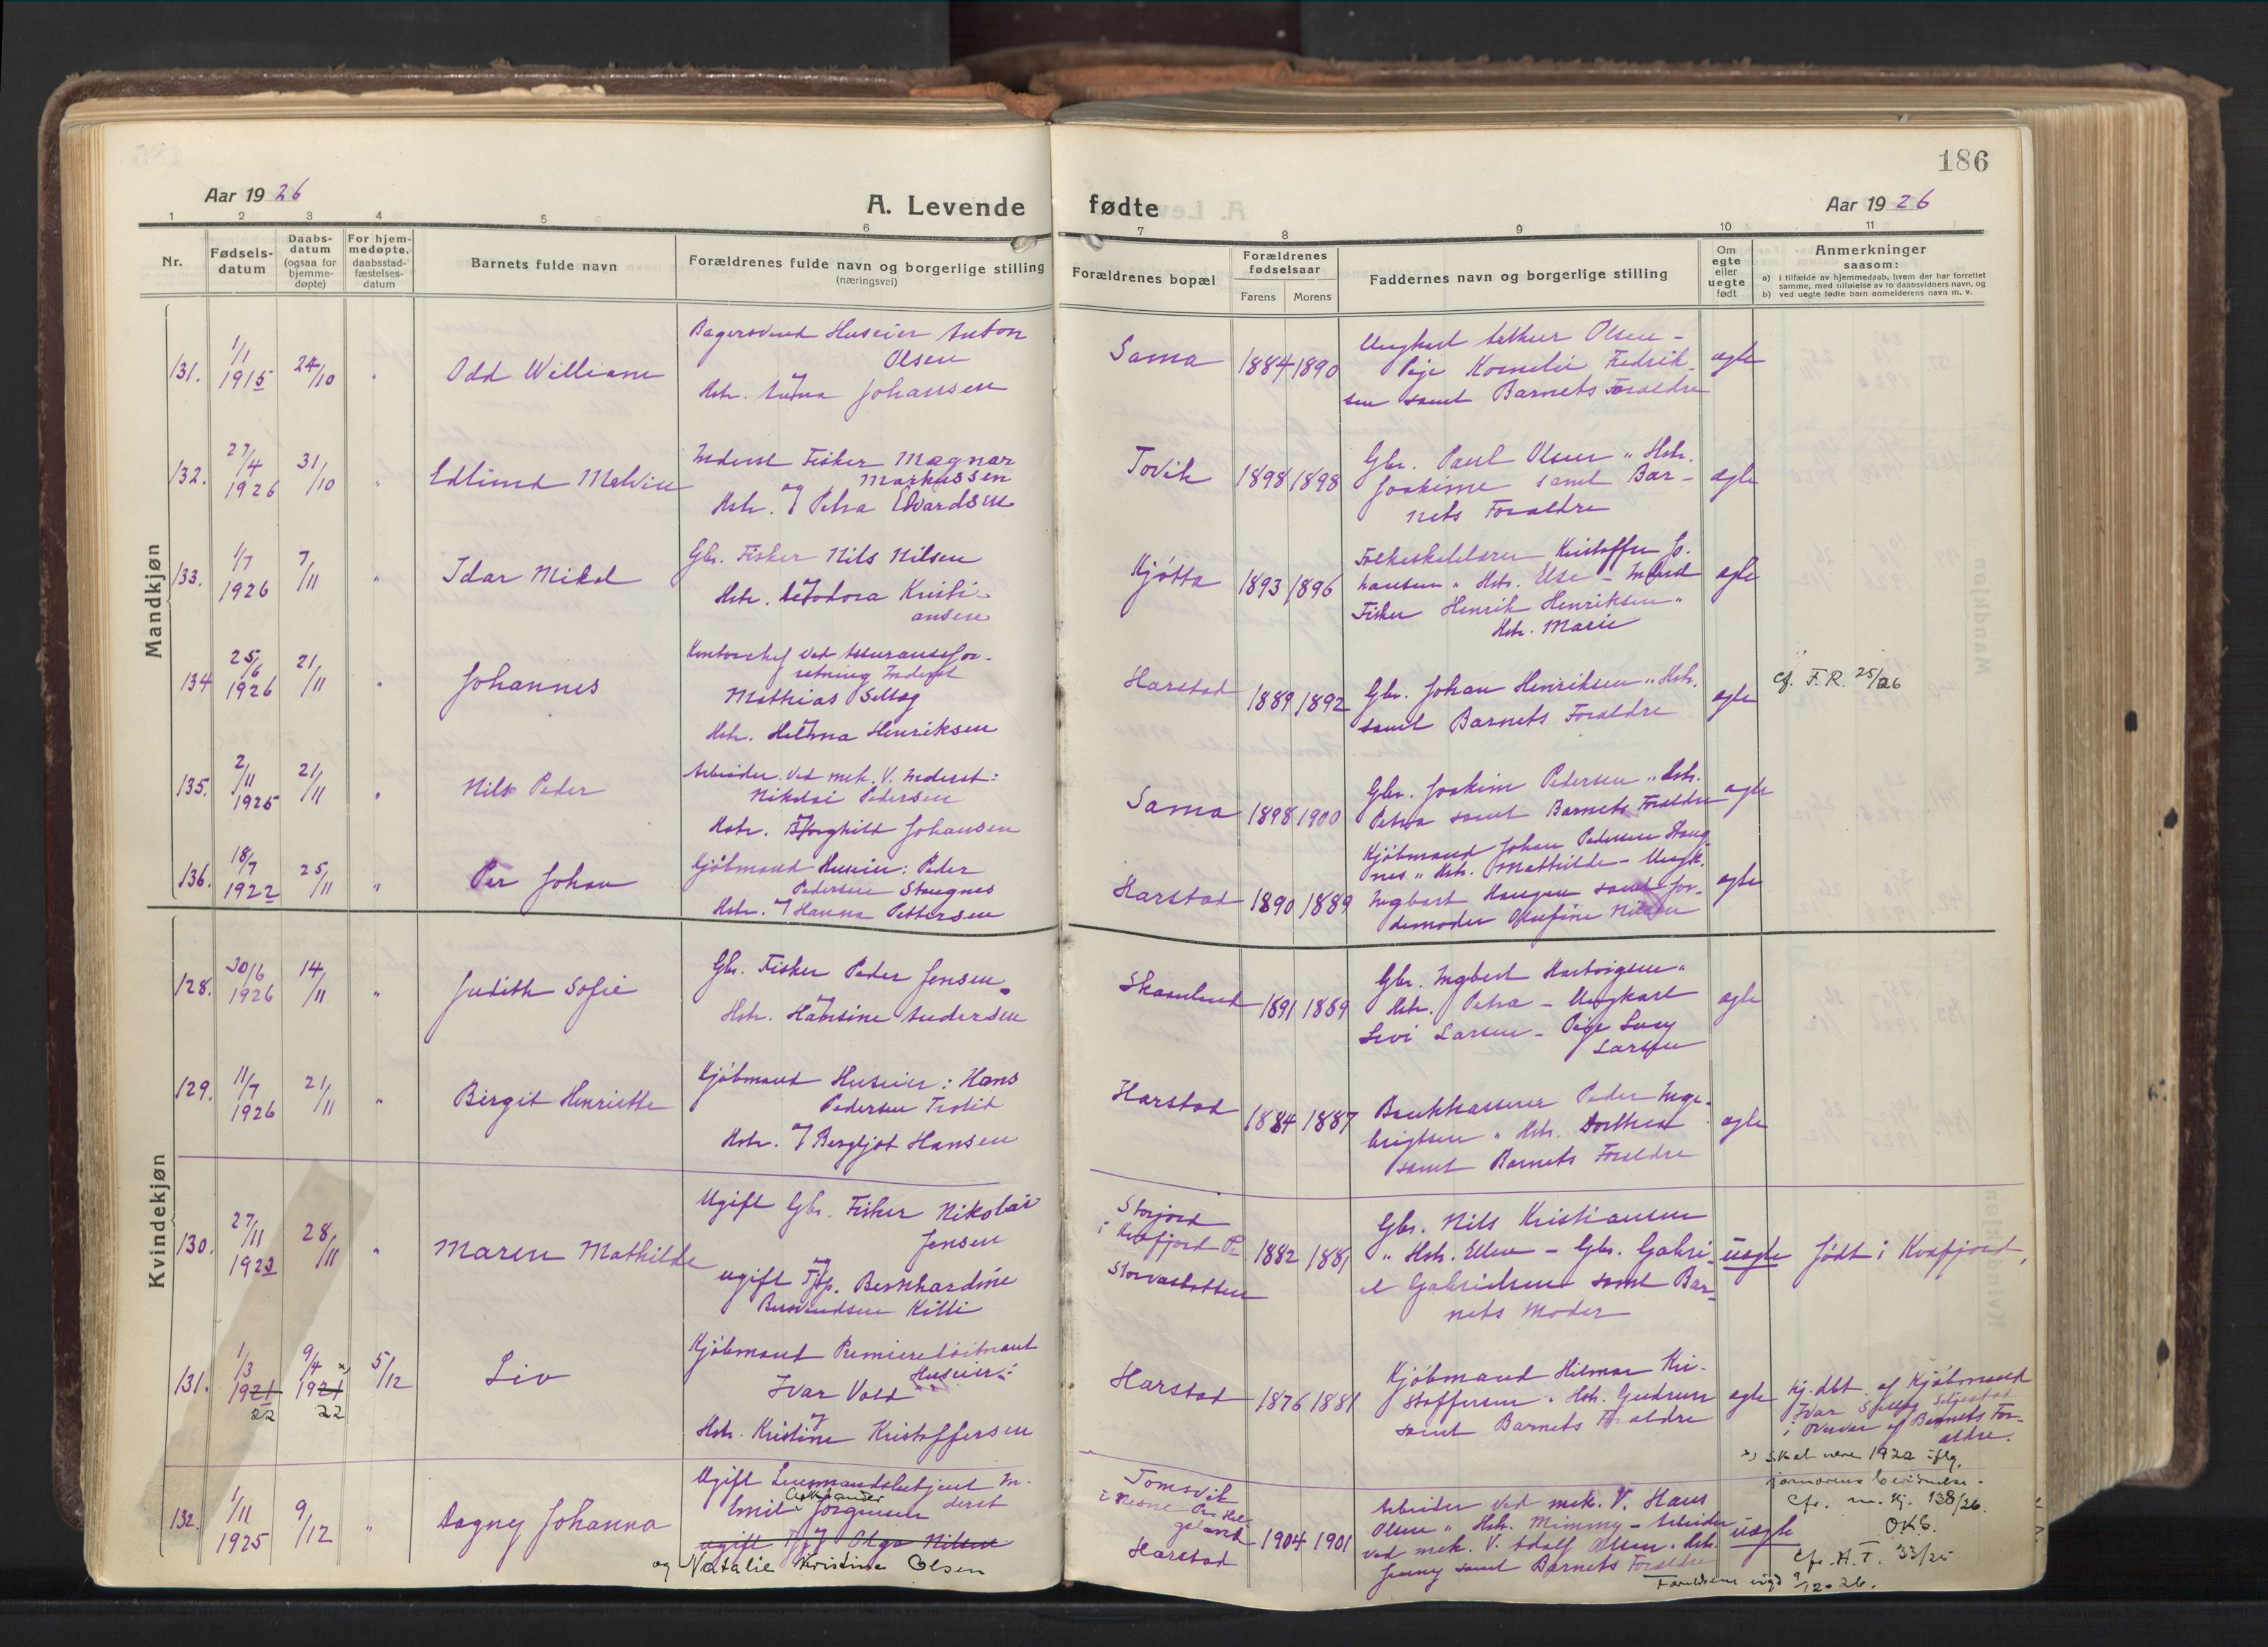 186
Aar 1926
A. Levende fødte
Aar 1926
1 2 3 4 5 6 7 8 9 10 11
Nr.
Fødsels-
datum
Daabs-
datum
(ogsaa for
hjemme-
døpte)
For hjem-
medøpte,
daabsstad-
fæstelses-
datum
Barnets fulde navn
Forældrenes fulde navn og borgerlige stilling
(næringsvei)
Forældrenes bopæl
Forældrenes
fødselsaar
Farens Morens
Faddernes navn og borgerlige stilling
Om
egte
eller
uegte
født
Anmerkninger
saasom:
a) i tilfælde av hjemmedaab, hvem der har forrettet
samme, med tilføielse av to daabsvidners navn, og
b) ved uegte fødte barn anmelderens navn m. v.
Mandkjøn
131.
1/1
1915
24/10
"
Odd William
Bagersvend Huseier Anton
Olsen
Hstr. Anna Johansen
Sama
1884 1890
Ungkarl Arthur Olsen -
Pige Kornelie Fredrik-
sen samt Barnets Forældre
ægte
132.
27/4
1926
31/10
"
Edlund Melvin
Inderst Fisker Magnar
Markussen
og
Hstr. Petra Edvardsen
Tovik
1898 1898
Gbr. Paul Olsen " Hstr.
Joakime samt Bar-
nets Forældre
ægte
133.
1/7
1926
7/11
"
Idar Mikal
Gbr. Fisker Nils Nilsen
Hstr. Kristi-
ansen
Kjøtta
1893 1896
Kristoffer Jo-
hansen " Hstr. Else - Inderst
Fisker Henrik Henriksen "
Hstr. Marie
ægte
134
25/6
1926
21/11
"
Johannes
Kontorchef ved Assurancefor-
retning Inderst
Mathias Selbog
Hstr. Helma Henriksen
Harstad
1889 1892
Gbr. Johan Henriksen " Hstr.
samt Barnets Forældre
ægte
cf. F. R. 25/26
135.
2/11
1925
21/11
"
Nils Peder
Arbeider ved mek. V. Inderst:
Nikolai Pedersen
Hstr. Borghild Johansen
Sama
1898 1900
Gbr. Joakim Pedersen " Hstr.
Petra samt Barnets Forældre
ægte
136.
18/7
1922
25/11
"
Per Johan
Kjøbmand Huseier: Peder
Pedersen Stangnes
Hstr. Hanna Pettersen
Harstad
1890 1889
Kjøbmand Johan Pedersen Stang-
nes " Hstr. Mathilde - Ungk.
Ingbart Haugen samt Jor-
demoder Olufine Nilsen
ægte
Kvindekjøn
128.
30/6
1926
14/11
"
Judith Sofie
Gbr. Fisker Peder Jensen
Hstr. Hansine Andersen
Skaanland
1891 1889
Gbr. Ingbert Hartvigsen "
Hstr. Petra - Ungkarl
Levi Larsen - Pige Lucy
Larsen
ægte
129.
11/7
1926
21/11
"
Birgit Henriette
Kjøbmand Huseier: Hans
Pedersen Trolid
Hstr. Bergljot Hansen
Harstad
1884 1887
Bankkasserer Peder Inge-
brigtsen " Hstr. Dorthea
samt Barnets Forældre
ægte
130.
27/11
1923
28/11
"
Maren Mathilde
Ugift Gbr. Fisker Nikolai
Jensen
ugift Tjp. Bernhardine
Berntsen Killi
Storjord
i Kvæfjord P.
Storvasbotten
1882 1881
Gbr. Nils Kristiansen
" Hstr. Ellen - Gbr. Gabri-
el Gabrielsen samt Bar-
nets Moder
uægte
født i Kvæfjord.
131.
1/3
1921
22
9/4 x)
1921
22
5/12
Liv
Kjøbmand Premierløitnant
Huseier:
Ivar Vold
Hstr. Kristine Kristoffersen
Harstad
1876 1881
Kjøbmand Hilmar Kri-
stoffersen " Hstr. Gudrun
samt Barnets Forældre
ægte
Hj. dbt. af Kjøbmand
Ivar
i Overvær af Barnets For-
ældre.
x) Skal være 1922 iflg.
jormorens bevidnelse.
Cfr. m. kj. 138/26.
OKS.
132.
1/11
1925
9/12
"
Dagny Johanna
Ugift Lensmandsbetjent In-
derst
Emil Jørgensen
ugift Tj. Olga Nilsen
og Natalie Kristina Olsen
Tomsvik
i Nesne P. Hel-
geland
Harstad
1904 1901
Arbeider ved mek. V. Hans
Olsen " Hstr. Mimmy - Arbeider
ved mek. V. Adolf Olsen " Hstr.
Jenny samt Barnets Forældre
uægte
cfr. H. T. 33/25
Foreldrene vigd 9/12-26.